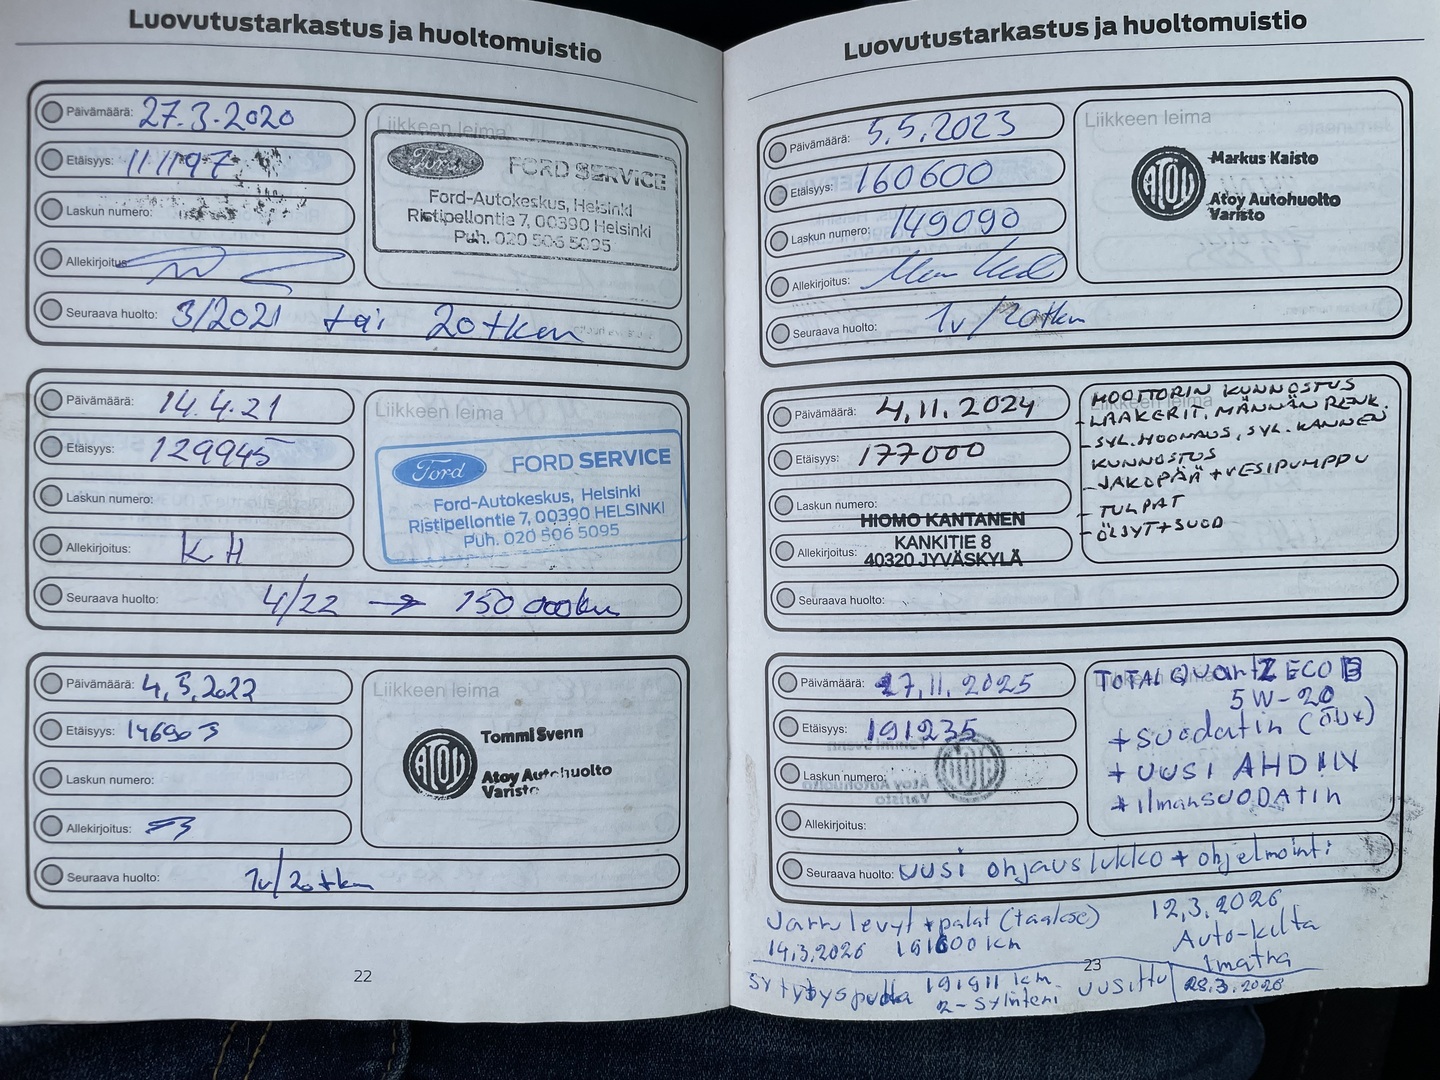 Luovutustarkastus ja huoltomuistio
Päivämäärä: 27.3.2020
Etäisyys: 111197
Laskun numero:
Allekirjoitus:
Seuraava huolto: 3/2021 tai 20tkm
Liikkeen leima
Ford FORD SERVICE
Ford-Autokeskus, Helsinki
Ristipellontie 7, 00390 Helsinki
Puh. 020 506 5095
Päivämäärä: 14.4.21
Etäisyys: 129945
Laskun numero:
Allekirjoitus: KH
Seuraava huolto: 4/22 → 150 000km
Liikkeen leima
Ford FORD SERVICE
Ford-Autokeskus, Helsinki
Ristipellontie 7, 00390 HELSINKI
Puh. 020 506 5095
Päivämäärä: 4,3,2022
Etäisyys: 146903
Laskun numero:
Allekirjoitus:
Seuraava huolto: 1v/20tkm
Liikkeen leima
ATOY
Tommi Svenn
Atoy Autohuolto
Varisto
22
Luovutustarkastus ja huoltomuistio
Päivämäärä: 5,5,2023
Etäisyys: 160600
Laskun numero: 149090
Allekirjoitus:
Seuraava huolto: 1v/20tkm
Liikkeen leima
ATOY
Markus Kaisto
Atoy Autohuolto
Varisto
Päivämäärä: 4,11,2024
Etäisyys: 177000
Laskun numero:
HIOMO KANTANEN
Allekirjoitus: KANKITIE 8
40320 JYVÄSKYLÄ
Seuraava huolto:
Liikkeen leima
MOOTTORIN KUNNOSTUS
-LAAKERIT, MÄNNÄN RENK.
-SYL.HOONAUS, SYL.KANNEN
KUNNOSTUS
-JAKOPÄÄ + VESIPUMPPU
- TULPAT
- ÖLJYT+SUOD
Päivämäärä: 27,11,2025
Etäisyys: 191235
Laskun numero:
Allekirjoitus:
Seuraava huolto: uusi ohjauslukko + ohjelmointi
TOTAL QUARTZ ECO B
5W-20
+ suodatin (öljy)
+ UUSI AHDIN
+ ilmanSUODATIN
Jarrulevyt + palat (taakse)
14,3,2026 191600 km
12,3,2026
Auto-kulta
Imatra
23
Sytytyspuola 191911 km.
2-sylinteri uusittu
28.3.2026